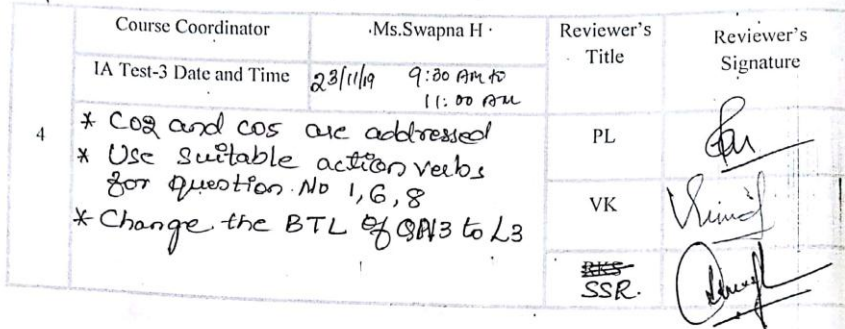 Course Coordinator
Ms.Swapna H
Reviewer's Title
Reviewer's Signature
IA Test-3 Date and Time
23/11/19 9:30 AM to 11:00 AM
4
* CO2 and CO5 are addressed
* Use Suitable action verbs
for question No 1,6,8
* Change the BTL of QN3 to L3
PL
VK
RKS
SSR.